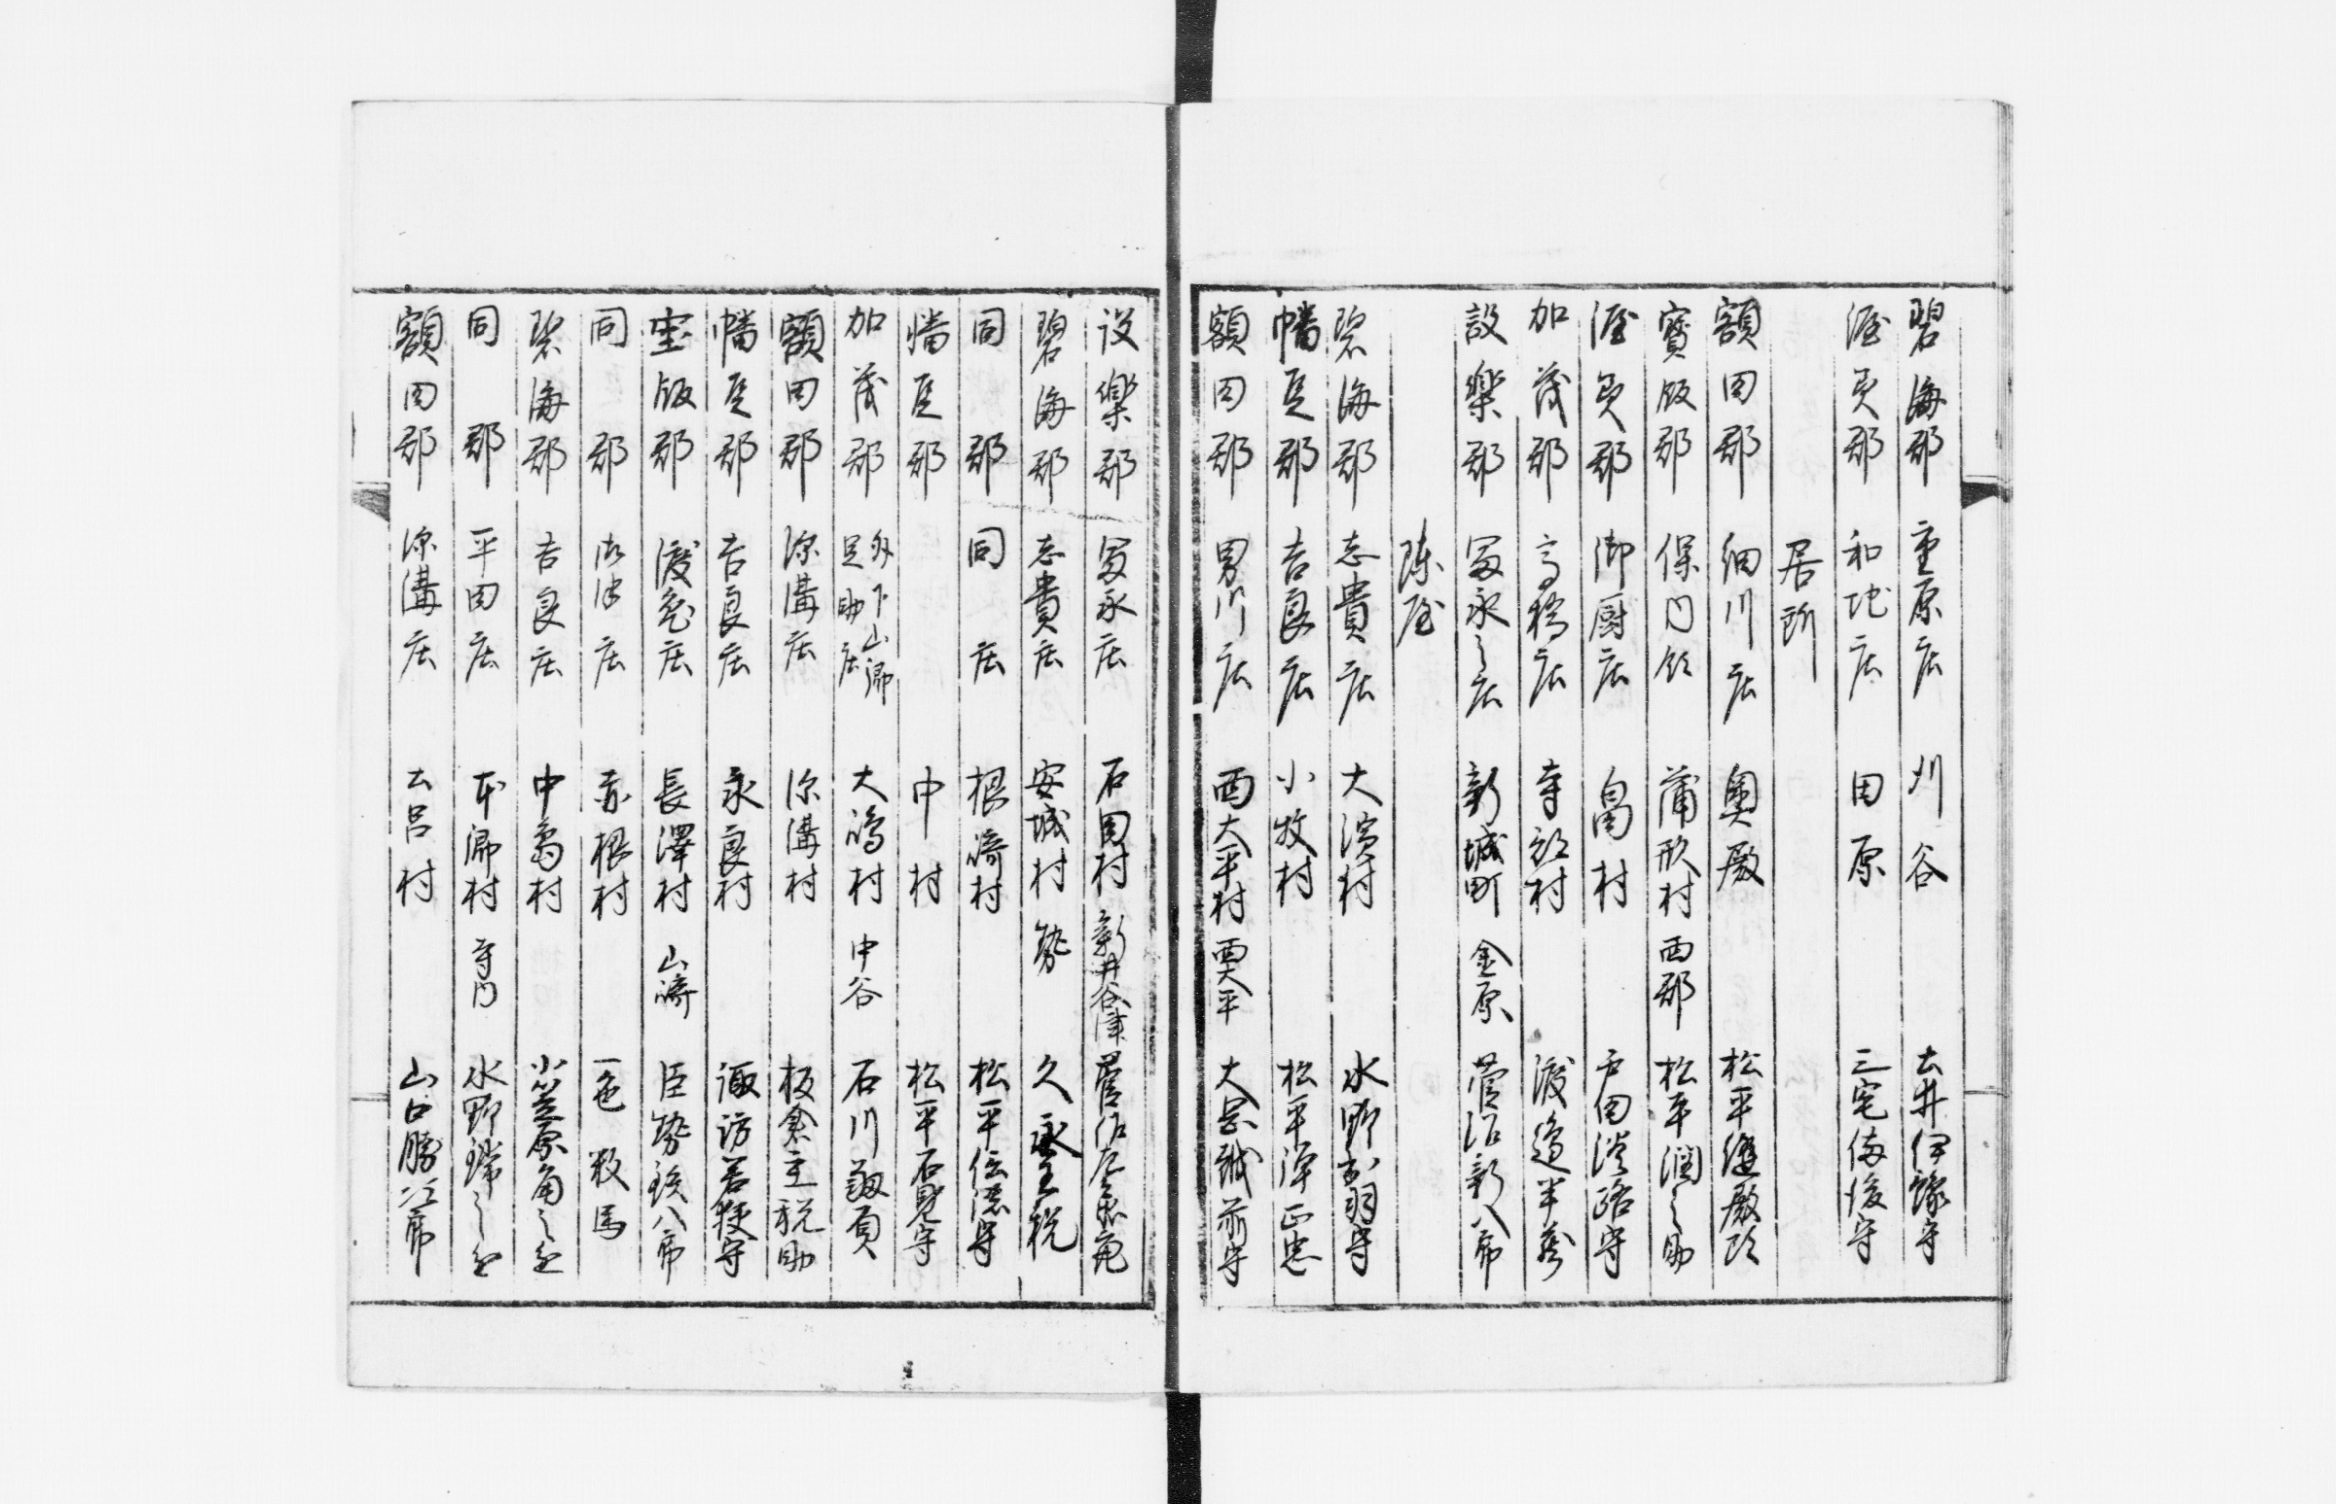 碧海郡 重原庄 刈谷 土井伊豫守
渥美郡 和地庄 田原 三宅備後守
居所
額田郡 細川庄 奥殿 松平縫殿頭
寶飯郡 保内領 蒲形村 西郡 松平淵之助
渥美郡 御厨庄 畠村 戸田淡路守
加茂郡 高橋庄 寺部村 渡邉半蔵
設樂郡 冨永之庄 新城町 金原 菅沼新八郎
陣屋
碧海郡 志貴庄 大濱村 水野出羽守
幡豆郡 吉良庄 小牧村 松平弾正忠
額田郡 男川庄 西大平村 西大平 大岡越前守
设樂郡 冨永庄 石田村 新井谷津 菅沼左京亮
碧海郡 志貴庄 安城村 勢 久永主税
同郡 同庄 根崎村 松平伝濃守
幡豆郡 中村 松平石見守
加茂郡 外下山郷 足助庄 大嶋村 中谷 石川靱負
額田郡 深溝庄 深溝村 板倉主税助
幡豆郡 吉良庄 永良村 諏訪若狭守
宝飯郡 渡老庄 長澤村 山崎 巨勢鉄八郎
同郡 御津庄 赤根村 一色数馬
碧海郡 吉良庄 中島村 小笠原角之丞
同郡 平田庄 本郷村 寺内 水野 之丞
額田郡 深溝庄 土呂村 山口勝 郎